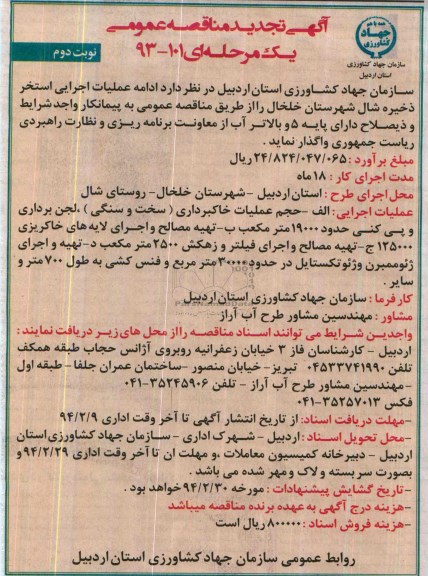 آگهی تجدید مناقصه عمومی
یک مرحله‌ای ۱۰۱-۹۳
نوبت دوم
همه با هم
جهاد
کشاورزی
سازمان جهاد کشاورزی
استان اردبیل
سازمان جهاد کشاورزی استان اردبیل در نظر دارد ادامه عملیات اجرایی استخر
ذخیره شال شهرستان خلخال را از طریق مناقصه عمومی به پیمانکار واجد شرایط
و ذیصلاح دارای پایه ۵ و بالاتر آب از معاونت برنامه ریزی و نظارت راهبردی
ریاست جمهوری واگذار نماید .
مبلغ برآورد : ۲۴/۸۲۴/۰۴۷/۰۶۵ ریال
مدت اجرای کار : ۱۸ ماه
محل اجرای طرح : استان اردبیل -شهرستان خلخال- روستای شال
عملیات اجرایی: الف -حجم عملیات خاکبرداری ( سخت و سنگی ) ،لجن برداری
و پی کنی حدود ۱۹۰۰۰ متر مکعب ب-تهیه مصالح و اجرای لایه های خاکریزی
۱۲۵۰۰۰ ج-تهیه مصالح و اجرای فیلتر و زهکش ۲۵۰۰ متر مکعب د-تهیه و اجرای
ژئوممبرن و ژئوتکستایل در حدود ۳۰۰۰۰ متر مربع و فنس کشی به طول ۷۰۰ متر و
سایر .
کارفرما : سازمان جهاد کشاورزی استان اردبیل
مشاور : مهندسین مشاور طرح آب آراز
واجدین شرایط می توانند اسناد مناقصه را از محل های زیر دریافت نمایند :
اردبیل - کارشناسان فاز ۳ خیابان زعفرانیه روبروی آژانس حجاب طبقه همکف
تلفن ۰۴۵۳۳۷۴۱۹۹۰ تبریز- خیابان منصور -ساختمان عمران جلفا - طبقه اول
-مهندسین مشاور طرح آب آراز - تلفن ۳۵۲۴۵۹۰۶-۰۴۱
فکس ۳۵۲۵۷۰۱۳-۰۴۱
-مهلت دریافت اسناد: از تاریخ انتشار آگهی تا آخر وقت اداری ۹۴/۲/۹
-محل تحویل اسناد : اردبیل - شهرک اداری - سازمان جهاد کشاورزی استان
اردبیل - دبیرخانه کمیسیون معاملات ،و مهلت ان تا آخر وقت اداری ۹۴/۲/۲۹ و
بصورت سربسته و لاک و مهر شده می باشد .
-تاریخ گشایش پیشنهادات : مورخه ۹۴/۲/۳۰ خواهد بود .
-هزینه درج آگهی به عهده برنده مناقصه میباشد
-هزینه فروش اسناد : ۸۰۰۰۰۰ ریال است
روابط عمومی سازمان جهاد کشاورزی استان اردبیل